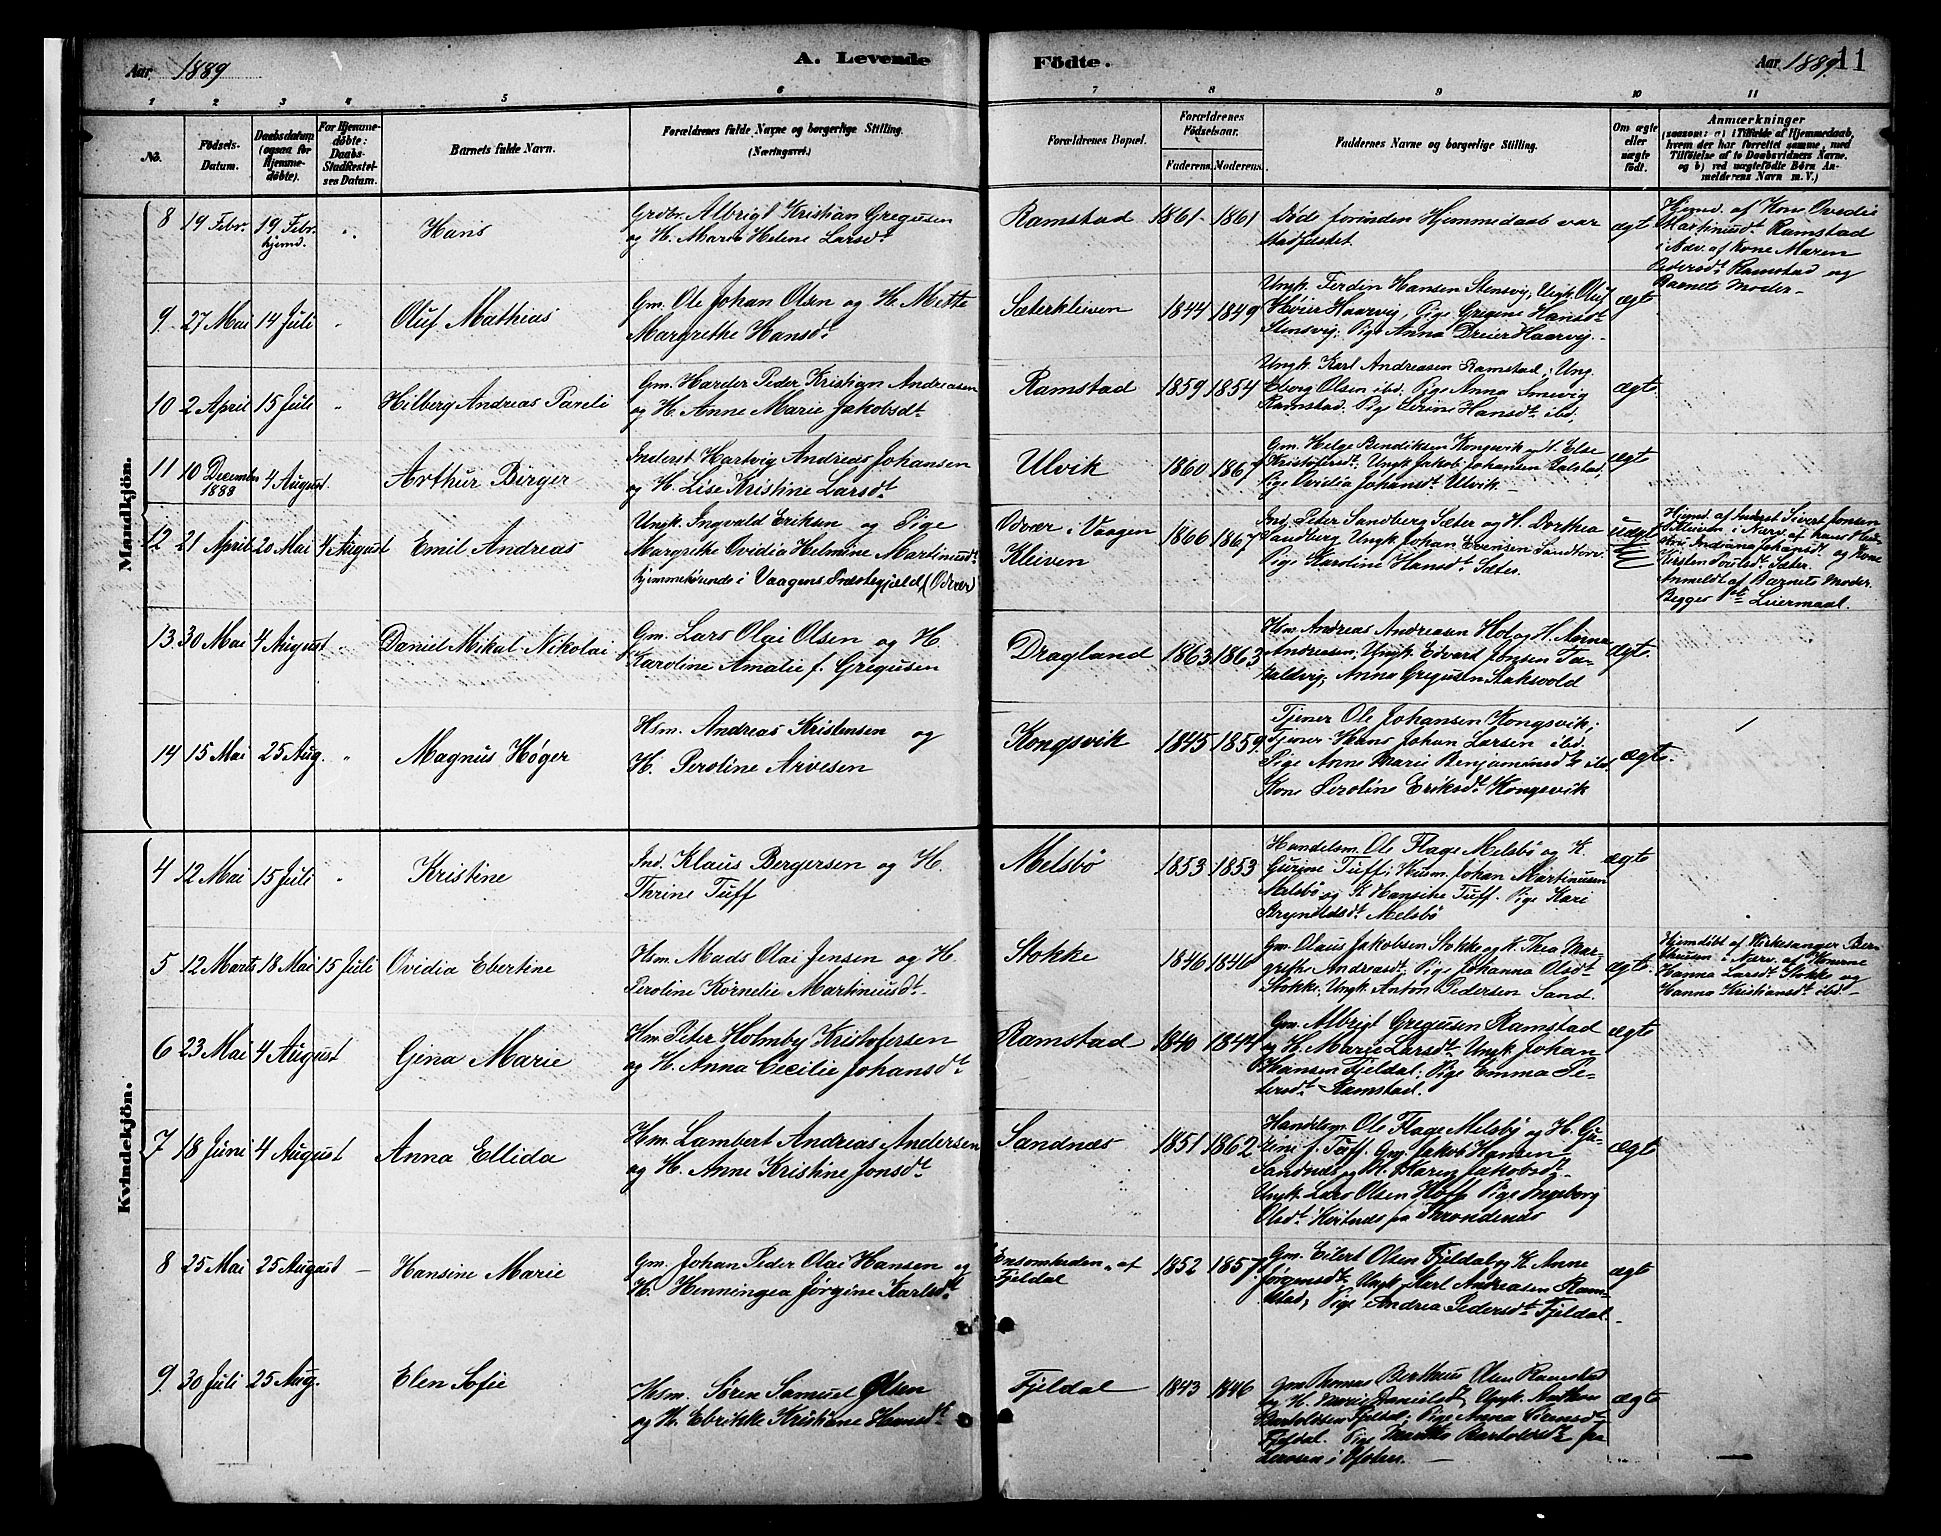 Aar 1889
A. Levende
Födte.
Aar 1889.
11
1 2 3 4 5 6 7 8 9 10 11
No.
Födsels-
Datum.
Daabsdatum
(ogsaa for
Hjemme-
døbte).
For Hjemme-
döbte:
Daabs-
Stadfæstel-
ses Datum.
Barnets fulde Navn.
Forældrenes fulde Navne og borgerlige Stilling.
(Næringsvei.)
Forældrenes Bopæl.
Forældrenes
Födselsaar.
Faderens. Moderens.
Faddernes Navne og borgerlige Stilling.
Om ægte
eller
uægte
födt.
Anmærkninger
(saasom: a) i Tilfælde af Hjemmedaab,
hvem der har forrettet samme, med
Tilföielse af to Daabsvidners Navne,
og b) ved uægtefödte Börn An-
melderens Navn m. V.)
Mandkjön.
8 19 Febr. 19 Febr.
hjemd.
Hans
Grdbr. Albrigt Kristian Gregusen
og H. Marie Helene Larsdt
Ramstad 1861 1861
Døde forinden Hjemmedaab var
stadfæstet
ægt
Hjemd. af Kone Ovedie
Martinusdt Ramstad
i Nærv. af Kone Maren
Pedersdt Ramstad og
Barnets Moder
9. 27 Mai 14 Juli "
Oluf Mathias
Gm. Ole Johan Olsen og H. Mette
Margrethe Hansdt
Sæterkleiven 1844 1849
Ungk. Ferdin Hansen Stensvig, Ungk. Oluf
Haarvig, Pige Gregine Hansdt
Stensvig, Pige Anna Dreier Haarvig.
ægte
10 2 April 15 Juli "
Hilberg Andreas Pareli
Gm. Harder Peder Kristian Andreasen
og H. Anne Marie Jakobsdt
Ramstad 1859 1854
Ungk. Karl Andreasen Ramstad; Ung.
Eborg Olsen ibd. Pige Anna
Ramstad. Pige Hansdt ibd.
ægte
11 10 December
1888 4 August "
Arthur Birger
Inderst Hartvig Andreas Johansen
og H. Lise Kristine Larsdt
Ulvik 1860 1867
Gm. Helge Bendiksen Kongsvik og H. Else
Kristofersdt, Ungk. Jakob Johansen
Pige Ovidia Johansdt Ulvik
ægte
12 21 April 20 Mai 4 August
Emil Andreas
Ungk. Ingvald Eriksen og Pige
Margrethe Ovidia Helmine Martinusdt
hjemmehørende i Vaagens Præstegjæld (Odvær)
Odvær i Vaagen
Kleiven
1866 1867
Ind. Peter Sandberg Sæter og H. Dorthea
Sandberg, Ungk. Johan Evensen Sandtorv
Pige Karoline Hansdt Sæter.
uægt
Hjemd. af Inderst Sivert Jonsen
Kleiven i Nærv. af hans
Indiana Johansdt og Kone
Kirsten Sæter.
Anmeldt af Barnets Moder.
Begges 1ste Leiermaal.
13. 30 Mai 4 August "
Daniel Mikal Nikolai
Gm. Lars Olai Olsen og H.
Karoline Amalie f. Gregusen
Dragland 1863 1863
Hsm. Andreas Andreasen Hol og H. Anna
Andreasen, Ungk. Edvart Jonsen
Anna Gregusen Staksvold
ægte.
14 15 Mai 25 Aug. "
Magnus Høger
Hsm. Andreas Kristensen og
H. Peroline Arvesen
Kongsvik 1845 1859.
Tjener Ole Johansen Kongsvik;
Tjener Hans Johan Larsen ibd.
Pige Anne Marie Benjaminsdt ibd.
Kone Peroline Eriksdt Kongsvik
ægte.
Kvindekjön.
4 12 Mai 15 Juli "
Kristine
Ind. Klaus Bergersen og H.
Thrine Tuff
Melsbö 1853 1853
Handelsm. Ole Flage Melsbö og H.
Gurine Tuff; Husm. Johan Martinusen
Melsbö og H. Hansine Tuff. Pige Kari
Brynildsdt Melsbö
ægte
5 12 Marts 18 Mai 15 Juli
Ovidia Ebertine
Hsm. Mads Olai Jensen og H.
Peroline Kornelie Martinusdt
Stokke 1846 1846
Gm. Olaus Jakobsen Stokke og H. Thea Mar-
grethe Andreasdt, Pige Johanna Olsdt
Stokke, Ungk. Anton Pedersen Sand.
ægte.
Hjemdöbt af Kirkesanger Bern-
i Nærv. af Konerne
Hanna Larsdt Stokke og
Hanna Kristiansdt ibd.
6 23 Mai 4 August
Gina Marie
Hsm. Peter Holmby Kristofersen
og H. Anna Cecilie Johansdt
Ramstad 1840 1844
Gm. Albrigt Gregusen Ramstad
og H. Marie Larsdt. Ungk. Johan
Hansen Fjeldal; Pige Emma Pe-
dersdt Ramstad.
ægte
7 18 Juni 4 August
Anna Ellida
Hsm. Lambert Andreas Andersen
og H. Anne Kristine Jonsdt
Sandnæs 1851 1862
Handelsm. Ole Flage Melsbö og H. Gu-
rine f. Tuff. Gm. Jakob Hansen
Sandnæs og H. Karen Jakobsdt
Ungk. Lars Olsen Hoff Pige Ingeborg
Olsdt Kvitnæs fra Throndenæs
ægte
8 25 Mai 25 August
Hansine Marie
Gm. Johan Peder Olai Hansen og
H. Henningea Jørgine Karlsdt
Ensomheden af
Fjeldal
1852 1857.
Gm. Eilert Olsen Fjeldal og H. Anne
Jørgensdt, Ungk. Karl Andreasen Ram-
stad; Pige Andrea Pedersdt Fjeldal.
ægt
9. 30 Juli 25 Aug.
Elen Sofie
Hsm. Sören Samuel Olsen
og H. Ebrikke Kristiane Hansdt
Fjeldal 1843 1846
Gm. Thomas Berthaus Olsen Ramstad
og H. Marie Danielsdt, Ungk. Nathan
Bartoldsen Fjeldal; Pige Anna Sörensdt
Fjeldal. Pige Martha Bartoldsdt fra
i Ofoten.
ægte